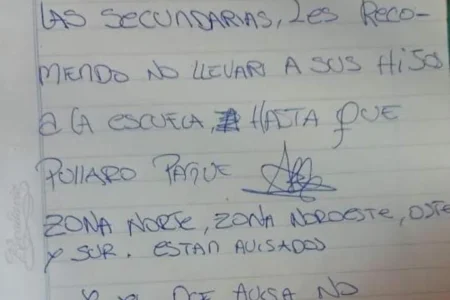 LAS SECUNDARIAS, LES RECO-
MENDO NO LLEVAR A SUS HIJOS
a LA ESCUELA, HASTA QUE
PULLARO PAGUE
ZONA NORTE, ZONA NOROESTE, OSTE
Y SUR. ESTAN AVISADOS
QUE AVISA NO
Rivadavia